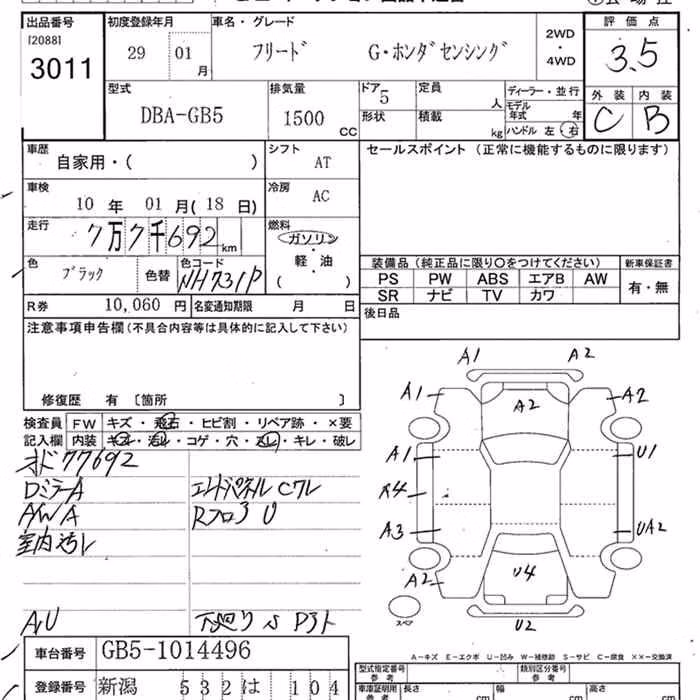 出品番号 初度登録年月 車名・グレード 評価点
[2088] 3011 29 01月 フリード G・ホンダセンシング 2WD・4WD 3.5
型式 排気量 ドア 定員 ディーラー・並行 外装 内装
DBA-GB5 1500CC 5 人 モデル年式 年 C B
形状 積載 kg ハンドル 左 右
車歴 シフト セールスポイント (正常に機能するものに限ります)
自家用・( ) AT
車検 冷房
10年 01月(18日) AC
走行 燃料
7万7千692km ガソリン・軽・油( )
色 色コード 装備品(純正品に限り○をつけてください) 新車保証書
ブラック 色替 NH731P PS PW ABS エアB AW 有・無
SR ナビ TV カワ
R券 10,060円 名変通知期限 月 日 後日品
注意事項申告欄(不具合内容等は具体的に記入して下さい)
修復歴 有 [箇所 ]
検査員記入欄 FW キズ・飛石・ヒビ割・リペア跡・×要
内装 キズ・汚レ・コゲ・穴・スレ・キレ・破レ
オド77692
DミラーA エンドパネルCワレ
AWA RフロアU
室内汚レ
A/U
A1 A2
A1 A2 A2
A1 U1
A3 UA2
A2 U4
U2
スペア
A-キズ E-エクボ U-凹み W-補修跡 S-サビ C-腐食 ××-交換済
車台番号 GB5-1014496
登録番号 新潟 532は 104
型式指定番号 参考 類別区分番号 参考
車庫証明用参考 長さ cm 幅 cm 高さ cm